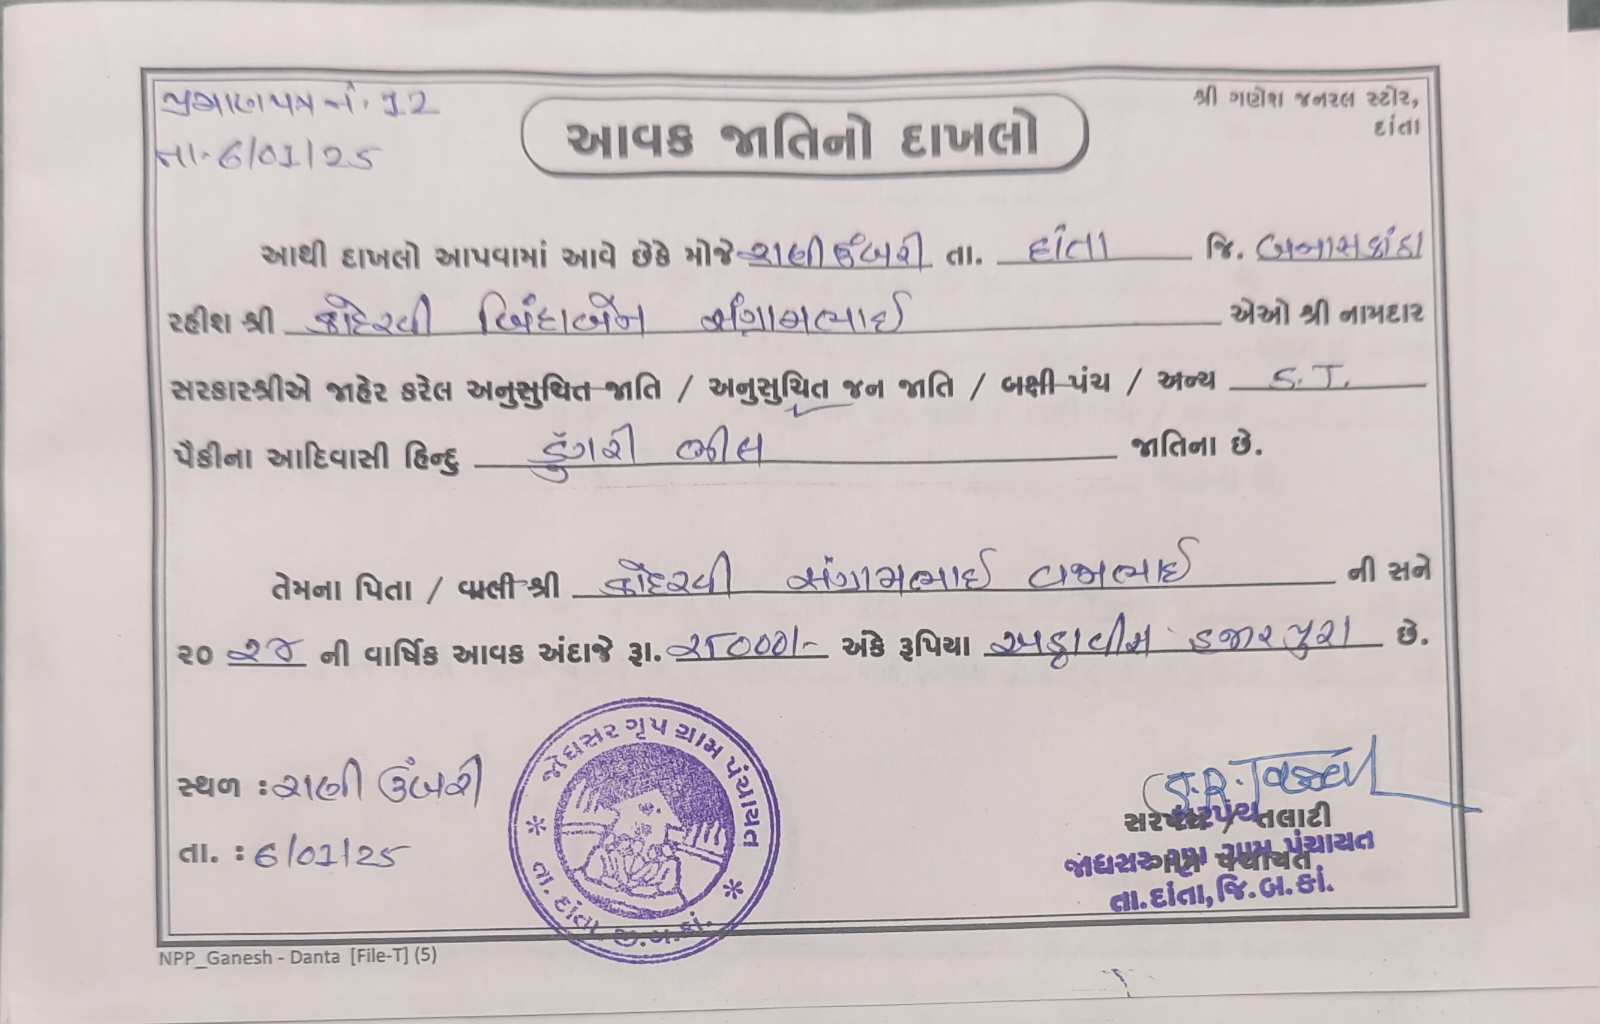 પ્રમાણપત્ર નં. 12
તા. 6/01/25
શ્રી ગણેશ જનરલ સ્ટોર,
દાંતા
આવક જાતિનો દાખલો
આથી દાખલો આપવામાં આવે છેકે મોજે રાણીઉંબરી તા. દાંતા જિ. બનાસકાંઠા
રહીશ શ્રી કોદરવી બિંદાબેન સંગ્રામભાઈ એઓ શ્રી નામદાર
સરકારશ્રીએ જાહેર કરેલ અનુસુચિત જાતિ / અનુસુચિત જન જાતિ / બક્ષી પંચ / અન્ય S.T.
પૈકીના આદિવાસી હિન્દુ ડુંગરી ભીલ જાતિના છે.
તેમના પિતા / વાલી શ્રી કોદરવી સંગ્રામભાઈ વજાભાઈ ની સને
૨૦ ૨૪ ની વાર્ષિક આવક અંદાજે રૂા. ૨૮૦૦૦/- અંકે રૂપિયા અઠ્ઠાવીસ હજાર પુરા છે.
જોધસર ગૃપ ગ્રામ પંચાયત
તા. દાંતા, જી.બ.કાં.
સ્થળ : રાણી ઉંબરી
તા. : 6/01/25
સરપંચ / તલાટી
સરપંચ
જોધસર ગૃપ ગ્રામ પંચાયત
તા.દાંતા, જિ.બ.કાં.
NPP_Ganesh - Danta [File-T] (5)